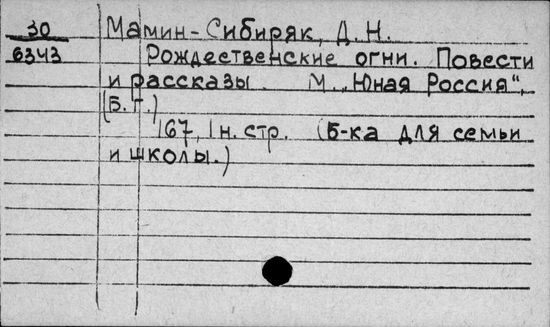 30 Мамин-Сибиряк, Д. Н.
6343 Рождественские огни. Повести
и рассказы. М. „Юная Россия",
(Б. г.)
167, 1 н. стр. (Б-ка для семьи
и школы.)